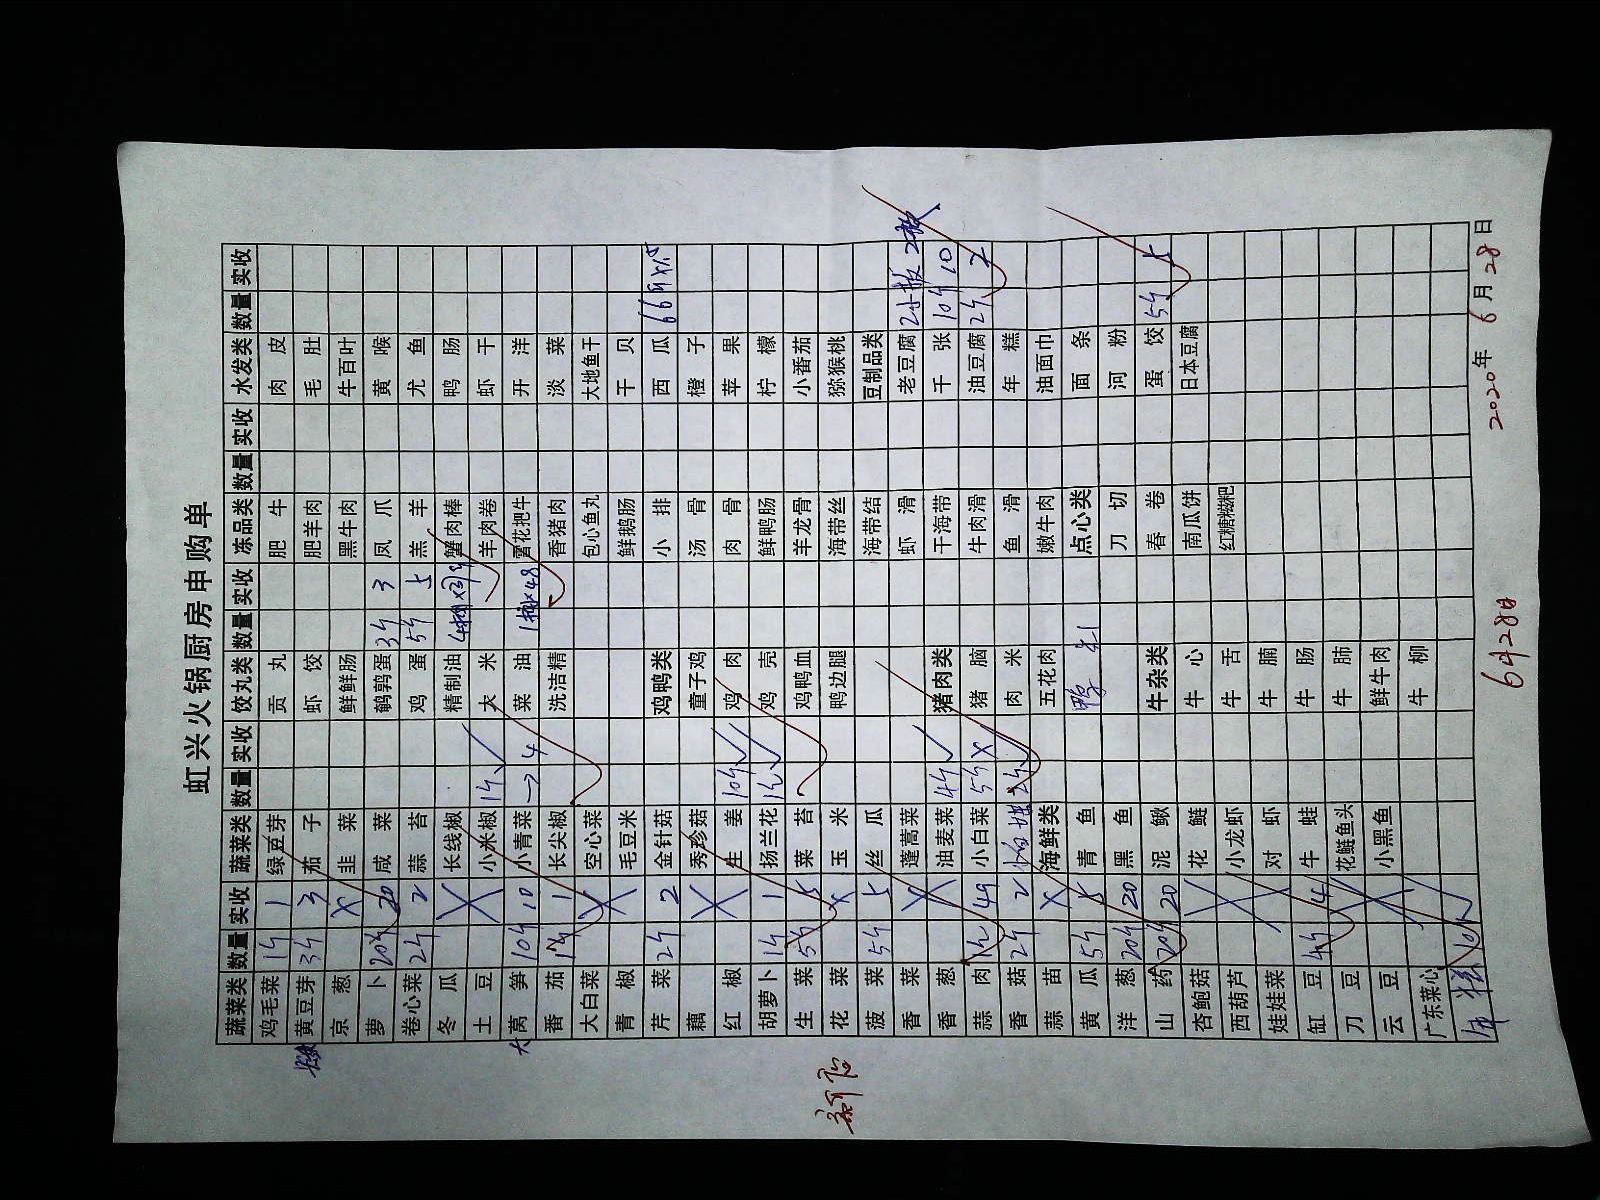 虹兴火锅厨房申购单
蔬菜类 数量 实收 蔬菜类 数量 实收 饺丸类 数量 实收 冻品类 数量 实收 水发类 数量 实收
鸡毛菜 1斤 1 绿豆芽 贡丸 肥牛 肉皮
黄豆芽 3斤 3 茄子 虾饺 肥羊肉 毛肚
京葱 X 韭菜 鲜鲜肠 黑牛肉 牛百叶
萝卜 20斤 20 咸菜 鹌鹑蛋 3斤 3 凤爪 黄喉
卷心菜 2斤 2 蒜苔 鸡蛋 5斤 5 羔羊 尤鱼
冬瓜 X 长线椒 精制油 蟹肉棒 鸭肠
土豆 X 小米椒 1斤 ✓ 大米 羊肉卷 虾干
大莴笋 10斤 10 小青菜 → 4 菜油 雪花把牛 开洋
番茄 1斤 1 长尖椒 洗洁精 香猪肉 淡菜
大白菜 X 空心菜 包心鱼丸 大地鱼干
青椒 X 毛豆米 鲜鹅肠 干贝
芹菜 2斤 2 金针菇 鸡鸭类 小排 西瓜
藕 X 秀珍菇 童子鸡 汤骨 橙子
红椒 X 生姜 10斤 ✓ 鸡肉 肉骨 苹果
胡萝卜 1斤 1 扬兰花 1斤 ✓ 鸡壳 鲜鸭肠 柠檬
生菜 5斤 5 菜苔 鸡鸭血 羊龙骨 小番茄
花菜 X 玉米 鸭边腿 海带丝 猕猴桃
菠菜 5斤 5 丝瓜 海带结 豆制品类
香菜 X 蓬蒿菜 虾滑 老豆腐
香葱 X 油麦菜 4斤 ✓ 猪肉类 干海带 千张 10斤 10
蒜肉 49 小白菜 5斤 X 猪脑 牛肉滑 油豆腐 2斤 2
香菇 2斤 2 肉米 鱼滑 年糕
蒜苗 X 海鲜类 五花肉 嫩牛肉 油面巾
黄瓜 5斤 5 青鱼 点心类 面条
洋葱 20斤 20 黑鱼 刀切 河粉
山药 20斤 20 泥鳅 牛杂类 春卷 蛋饺 5斤 5
杏鲍菇 花鲢 牛心 南瓜饼 日本豆腐
西葫芦 小龙虾 牛舌 红糖糍粑
娃娃菜 对虾 牛腩
缸豆 4斤 4 牛蛙 牛肠
刀豆 花鲢鱼头 牛肺
云豆 小黑鱼 鲜牛肉
广东菜心 牛柳
2020年6月28日
6月28日